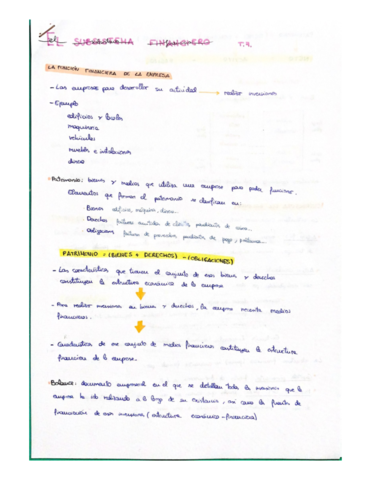 EL SUBSISTEMA FINANCIERO T.9.
LA FUNCIÓN FINANCIERA DE LA EMPRESA.
- Las empresas para desarrollar su actividad → realizar inversiones
- Ejemplo
edificios y locales
maquinaria
vehículos
muebles e instalaciones
dinero
Patrimonio: bienes y medios que utiliza una empresa para poder funcionar.
Elementos que forman el patrimonio se clasifican en:
Bienes edificios, máquinas, dinero...
Derechos facturas emitidas de clientes pendientes de cobro...
Obligaciones facturas de proveedores pendientes de pago, préstamos...
PATRIMONIO = (BIENES + DERECHOS) - (OBLIGACIONES)
- Las características que tienen el conjunto de esos bienes y derechos
constituyen la estructura económica de la empresa
- Para realizar inversiones en bienes y derechos, la empresa necesita medios
financieros.
- Características de ese conjunto de medios financieros constituyen la estructura
financiera de la empresa.
Balance: documento empresarial en el que se detallan todas las inversiones que la
empresa ha ido realizando a lo largo de su existencia, así como la función de
financiación de esas inversiones (estructura económico-financiera)